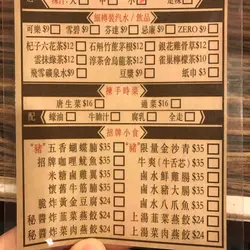 類樽裝汽水/飲品
可樂$9 雪碧$9 芬達$9 忌廉$9 ZERO$9
杞子六花茶$12 石斛竹蔗茅根$12 銀花雞骨草$12
雲抹綠茶$12 淳茶舍烏龍茶$12 雀巢檸檬茶$10
飛雪礦泉水$9 豆漿$9 紙巾$3
揀手時菜
唐生菜$16 通菜$16
配 蠔油 牛鰤汁 腐乳 全走
招牌小食
"豬"五香蝴蝶腩$35 "豬"限量金沙骨$35
招牌咖喱魷魚$35 牛爽(牛舌芯)$35
米糖鹵雞翼$35 鹵水鮮雞腸$35
懷舊牛筋腩$35 鹵水豬大腸$35
脆炸黃金豆腐$35 鹵水墨魚$35
秘醬炸韮菜燕餃$24 上湯韮菜燕餃$24
秘醬炸菜肉燕餃$24 上湯菜肉燕餃$24